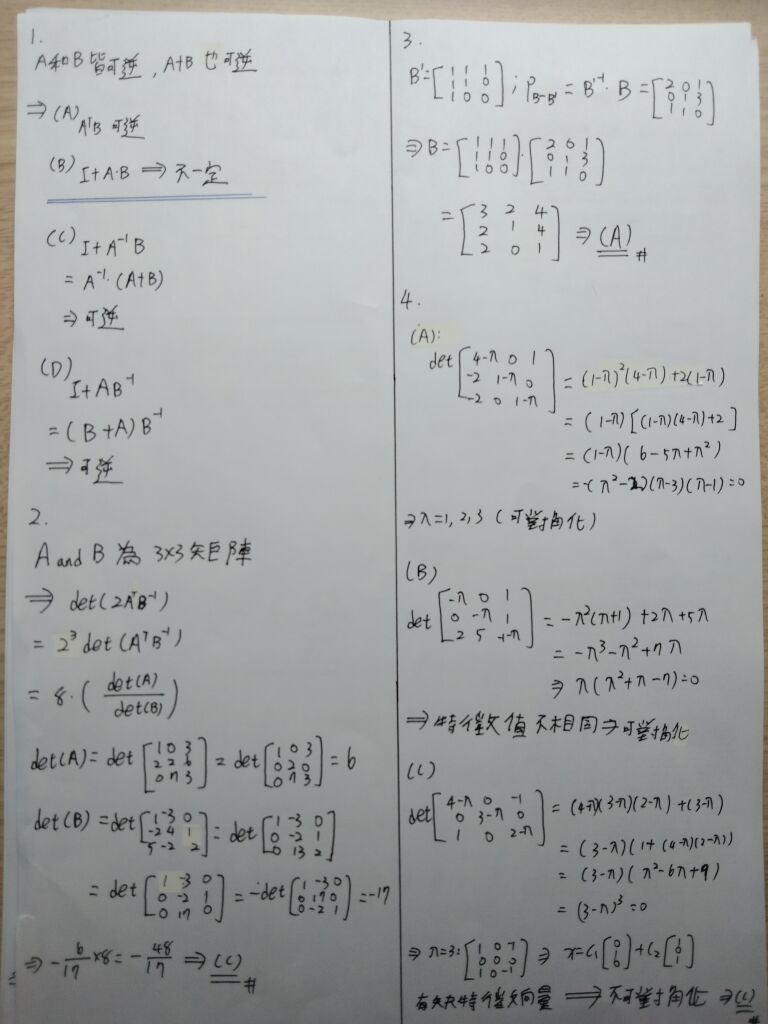 1.
A和B皆可逆, A+B也可逆
⇒ (A) AᵀB 可逆
(B) I+A·B ⇒ 不一定
(C) I+A⁻¹B
= A⁻¹·(A+B)
⇒ 可逆
(D) I+AB⁻¹
= (B+A)B⁻¹
⇒ 可逆
2.
A and B 為 3×3 矩陣
⇒ det(2AᵀB⁻¹)
= 2³ det(AᵀB⁻¹)
= 8·(det(A)/det(B))
det(A) = det [1 0 3; 2 2 6; 0 7 3] = det [1 0 3; 0 2 0; 0 7 3] = 6
det(B) = det [1 -3 0; -2 4 1; 5 -2 2] = det [1 -3 0; 0 -2 1; 0 13 2]
= det [1 -3 0; 0 -2 1; 0 17 0] = -det [1 -3 0; 0 17 0; 0 -2 1] = -17
⇒ -6/17 ×8 = -48/17 ⇒ (C) #
3.
B' = [1 1 1; 1 1 0; 1 0 0]; P_B→B' = B'⁻¹·B = [2 0 1; 0 1 3; 1 1 0]
⇒ B = [1 1 1; 1 1 0; 1 0 0]·[2 0 1; 0 1 3; 1 1 0]
= [3 2 4; 2 1 4; 2 0 1] ⇒ (A) #
4.
(A):
det [4-λ 0 1; -2 1-λ 0; -2 0 1-λ] = (1-λ)²(4-λ)+2(1-λ)
= (1-λ)[(1-λ)(4-λ)+2]
= (1-λ)(6-5λ+λ²)
= -(λ-2)(λ-3)(λ-1)=0
⇒ λ=1, 2, 3 (可對角化)
(B)
det [-λ 0 1; 0 -λ 1; 2 5 -1-λ] = -λ²(λ+1)+2λ+5λ
= -λ³-λ²+7λ
⇒ λ(λ²+λ-7)=0
⇒ 特徵值不相同⇒可對角化
(C)
det [4-λ 0 -1; 0 3-λ 0; 1 0 2-λ] = (4-λ)(3-λ)(2-λ)+(3-λ)
= (3-λ)(1+(4-λ)(2-λ))
= (3-λ)(λ²-6λ+9)
= (3-λ)³=0
⇒ λ=3: [1 0 -1; 0 0 0; 1 0 -1] ⇒ x=C₁[0; 1; 0]+C₂[1; 0; 1]
有缺特徵向量 ⇒ 不可對角化 ⇒(C) #